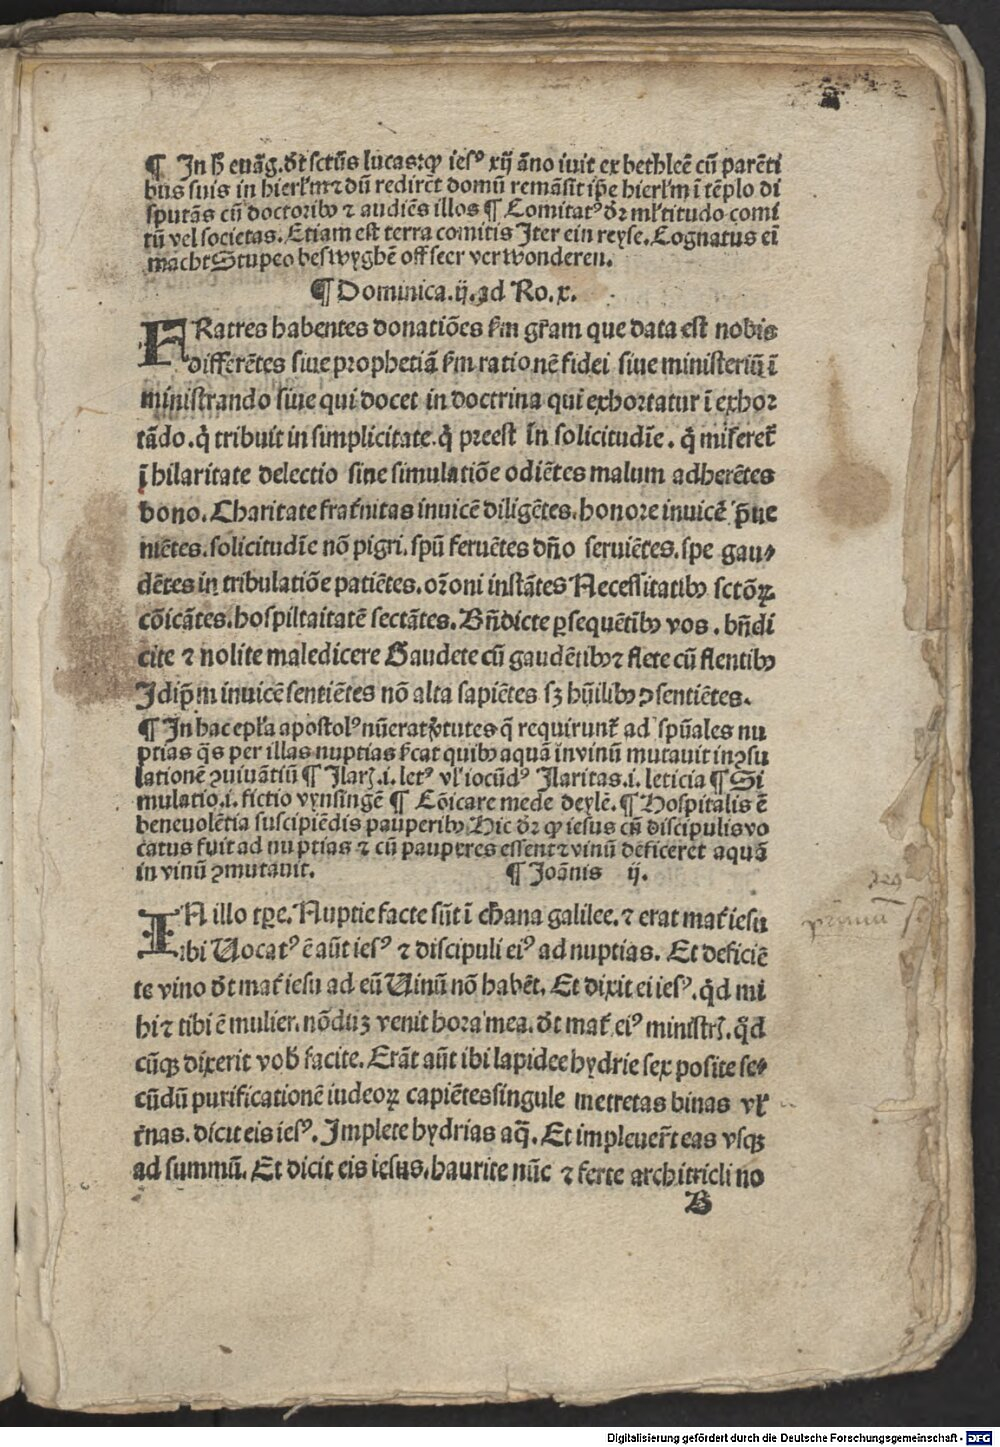 ¶ In h̄ euāg. dt̄ sctūs lucas: qꝫ iesꝰ xij āno iuit ex bethleē cū parēti
bus suis in hierl̄m ⁊ dū rediret domū remāsit ip̄e hierl̄m ī tēplo di
sputās cū doctoribꝰ ⁊ audiēs illos ¶ Comitatꝰ dr̄ ml̄titudo comi
tū vel societas. Etiam est terra comitis Iter ein reyse. Cognatus ei
macht Stupeo beswygbē off seer verwonderen.
¶ Dominica. ij. ad Ro. x.
FRatres habentes donatiōes sm̄ gr̄am que data est nobis
differētes siue prophetiā sm̄ rationē fidei siue ministeriū ī
ministrando siue qui docet in doctrina qui exhortatur ī exhor
tādo. q̇ tribuit in simplicitate. q̇ preest in solicitudīe. q̇ miseret̄
ī hilaritate delectio sine simulatiōe odiētes malum adherētes
bono. Charitate frat̄nitas inuicē diligētes. honore inuicē p̄ue
niētes. solicitudīe nō pigri. spū feruētes dn̄o seruiētes. spe gau⸗
dētes in tribulatiōe patiētes. or̄oni instātes Necessitatibꝰ sctōꝝ
cōicātes. hospiltaitatē sectātes. Bn̄dicte ꝑsequētibꝰ vos. bn̄di
cite ⁊ nolite maledicere Gaudete cū gaudētibꝰ ⁊ flete cū flentibꝰ
Idip̄m inuicē sentiētes nō alta sapiētes sꝫ hūilibꝰ ꝯsentiētes.
¶ In hac epl̄a apostolꝰ nūerat v̄tutes q̄ requirunt̄ ad spūales nu
ptias q̄s per illas nuptias s̄cat quibꝰ aquā in vinū mutauit in ꝯsu
lationē ꝯuiuātiū ¶ Ilarꝭ. i. letꝰ vl̄ iocūdꝰ Ilaritas. i. leticia ¶ Si
mulatio. i. fictio vynsingē ¶ Cōicare mede deylē. ¶ Hospitalis ē
beneuolētia suscipiēdis pauperibꝰ Hic dr̄ qꝫ iesus cū discipulis vo
catus fuit ad nuptias ⁊ cū pauperes essent ⁊ vinū deficeret aquā
in vinū ꝯmutauit. ¶ Joānis ij.
IN illo tp̄e. Nuptie facte sūt ī chana galilee. ⁊ erat mat̄ iesu
ibi Uocatꝰ ē aūt iesꝰ ⁊ discipuli eiꝰ ad nuptias. Et deficiē
te vino dt̄ mat̄ iesu ad eū Uinū nō habēt. Et dixit ei iesꝰ. qd̄ mi
hi ⁊ tibi ē mulier. nōduꝫ venit hora mea. dt̄ mat̄ eiꝰ ministrꝭ. qd̄
cūqꝫ dixerit vob̄ facite. Erāt aūt ibi lapidee hydrie sex posite se⸗
cūdū purificationē iudeoꝝ capiētes singule metretas binas vl̄
t̄nas. dicit eis iesꝰ. Implete hydrias aq̄. Et impleuer̄t eas vsqꝫ
ad summū. Et dicit eis iesus. haurite nūc ⁊ ferte architricli no
B
Digitalisierung gefördert durch die Deutsche Forschungsgemeinschaft - DFG